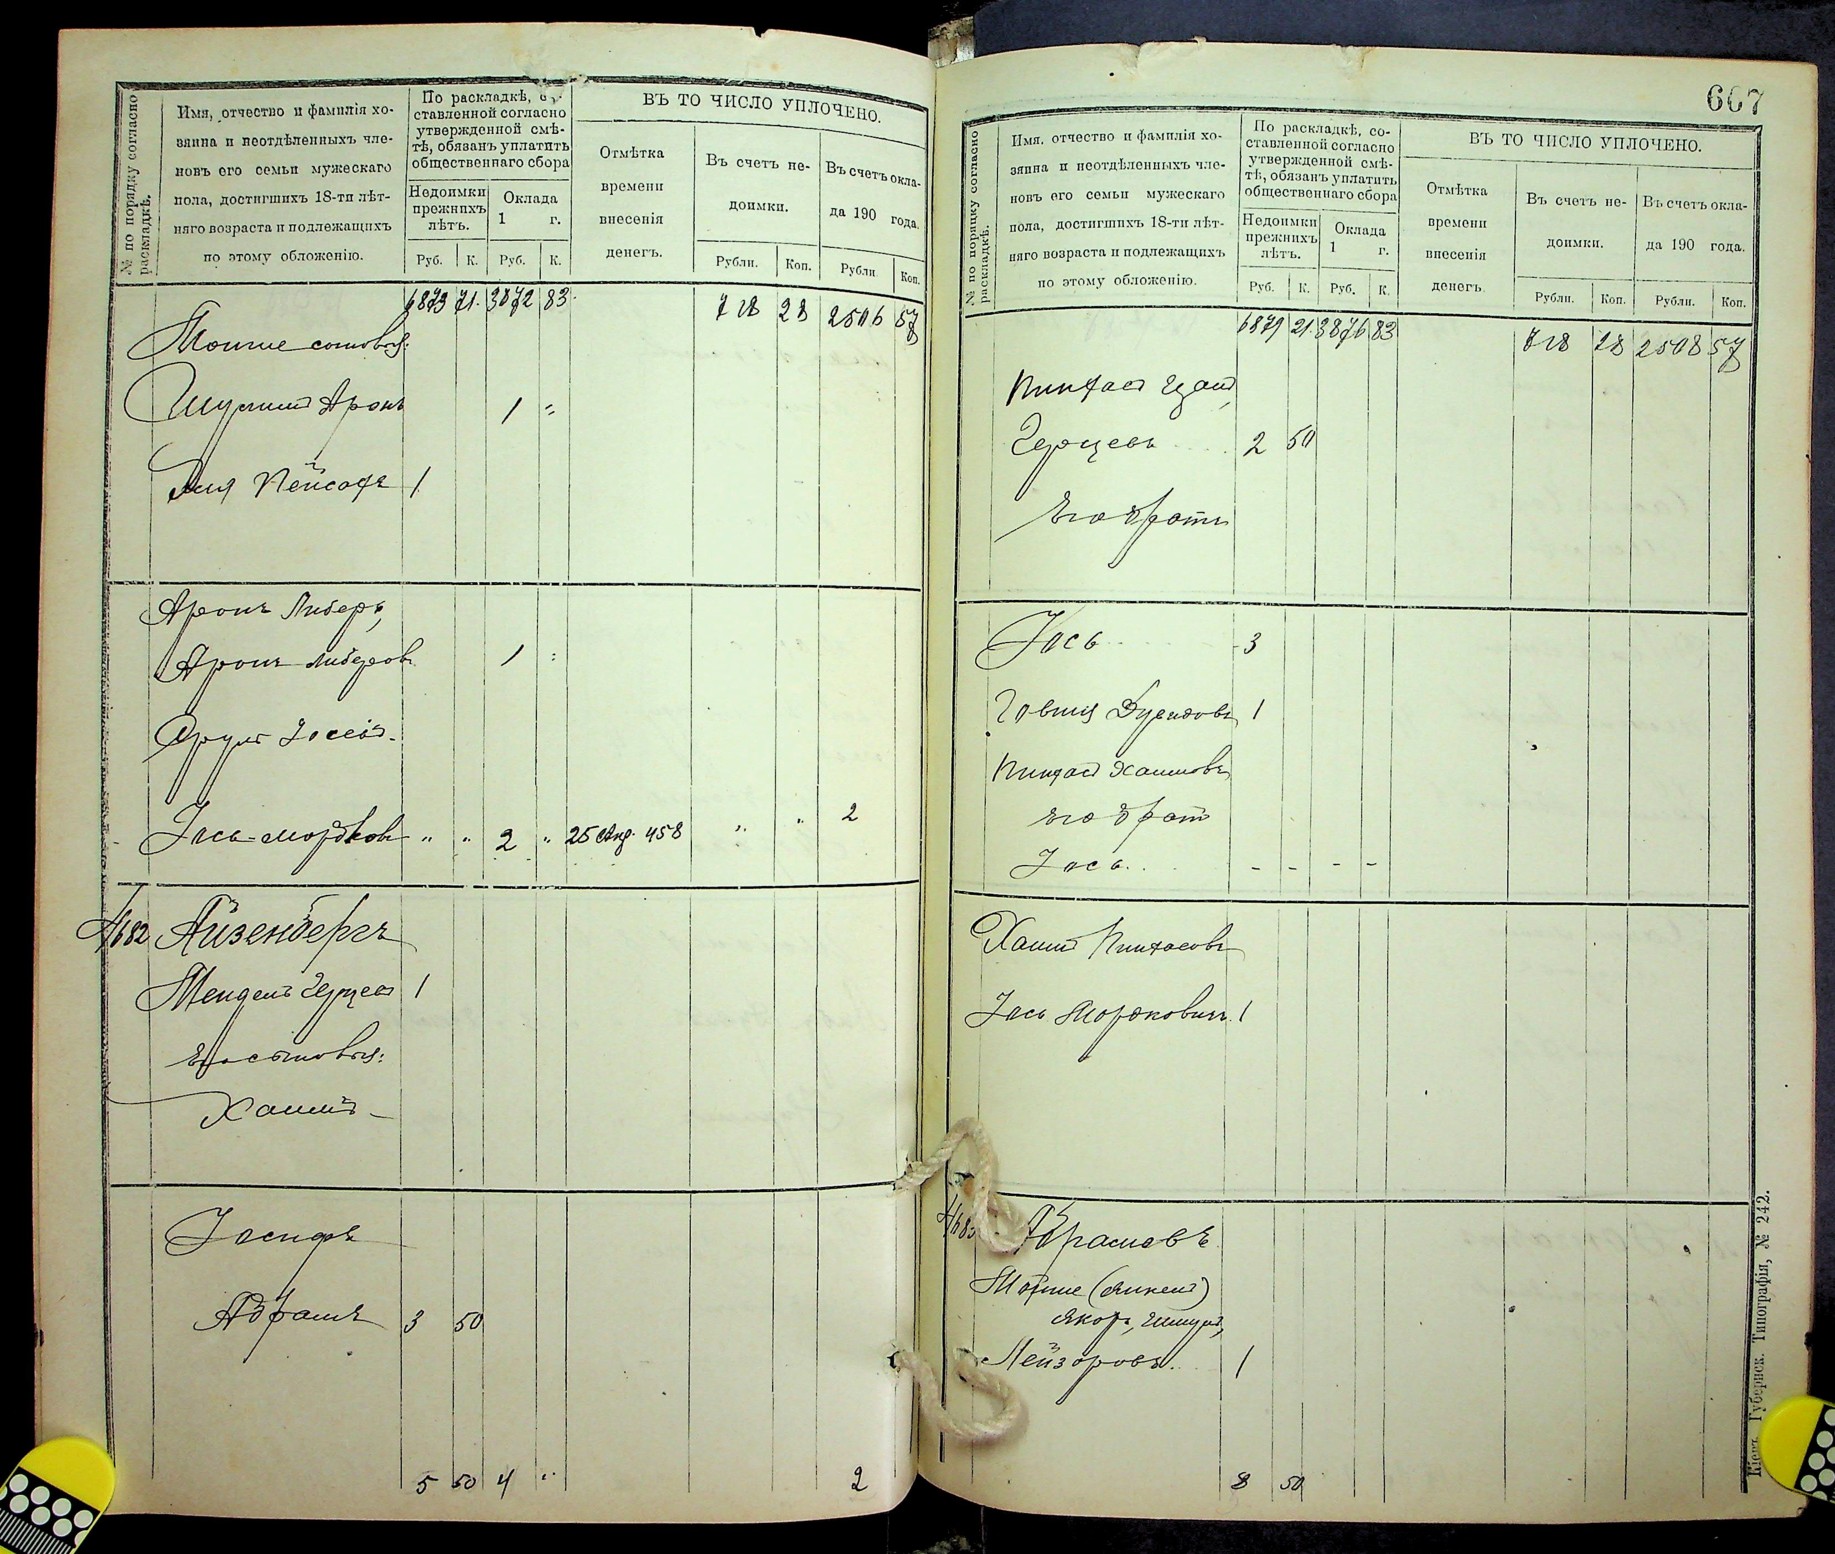 № по порядку согласно раскладкѣ.
Имя, отчество и фамилія хо-
зяина и неотдѣленныхъ чле-
новъ его семьи мужескаго
пола, достигшихъ 18-ти лѣт-
няго возраста и подлежащихъ
по этому обложенію.
По раскладкѣ,
ставленной согласно
утвержденной смѣ-
тѣ, обязанъ уплатить
общественнаго сбора
Недоимки
прежнихъ
лѣтъ.
Оклада
1 г.
Руб. К. Руб. К.
ВЪ ТО ЧИСЛО УПЛОЧЕНО.
Отмѣтка
времени
внесенія
денегъ.
Въ счетъ не-
доимки.
Въ счетъ окла-
да 190 года.
Рубли. Коп. Рубли Коп.
6873 71 3872 83 718 28 2506 57
Мошие сыновья:
Аронъ 1 "
Пейсахъ 1
Аронъ Либеръ,
Аронъ Либеровъ 1 :
Іось-Мордков " " 2 " 25 458 " " 2
№ 682 Айзенбергъ
Мендель Герцевъ 1
Его сыновья:
Хаимъ
Іосифъ
Абрамъ 3 50
5 50 4 " 2
667
№ по порядку согласно раскладкѣ.
Имя, отчество и фамилія хо-
зяина и неотдѣленныхъ чле-
новъ его семьи мужескаго
пола, достигшихъ 18-ти лѣт-
няго возраста и подлежащихъ
по этому обложенію.
По раскладкѣ, со-
ставленной согласно
утвержденной смѣ-
тѣ, обязанъ уплатить
общественнаго сбора
Недоимки
прежнихъ
лѣтъ.
Оклада
1 г.
Руб. К. Руб. К.
ВЪ ТО ЧИСЛО УПЛОЧЕНО.
Отмѣтка
времени
внесенія
денегъ.
Въ счетъ не-
доимки.
Въ счетъ окла-
да 190 года.
Рубли. Коп. Рубли. Коп.
6879 21 3876 83 718 28 2508 57
Пинхас
Герцевъ 2 50
Его братъ
Іось 3
Говшия 1
Пинхас Хаимовъ
его брат
Іось - - - -
Хаимъ Пинхасовъ
Іось Мордковичъ 1
№ 683 Абрамовъ
Мошие
Лейзоровъ 1
8 50
Кіевъ. Губернск. Типографія, № 242.